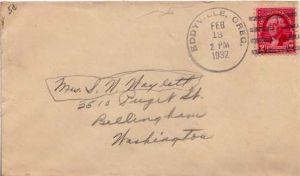 50
EDDYVILLE, OREG.
FEB
13
2 PM
1932
Mrs. S. W. Waylett
2610 Puget St.
Bellingham
Washington